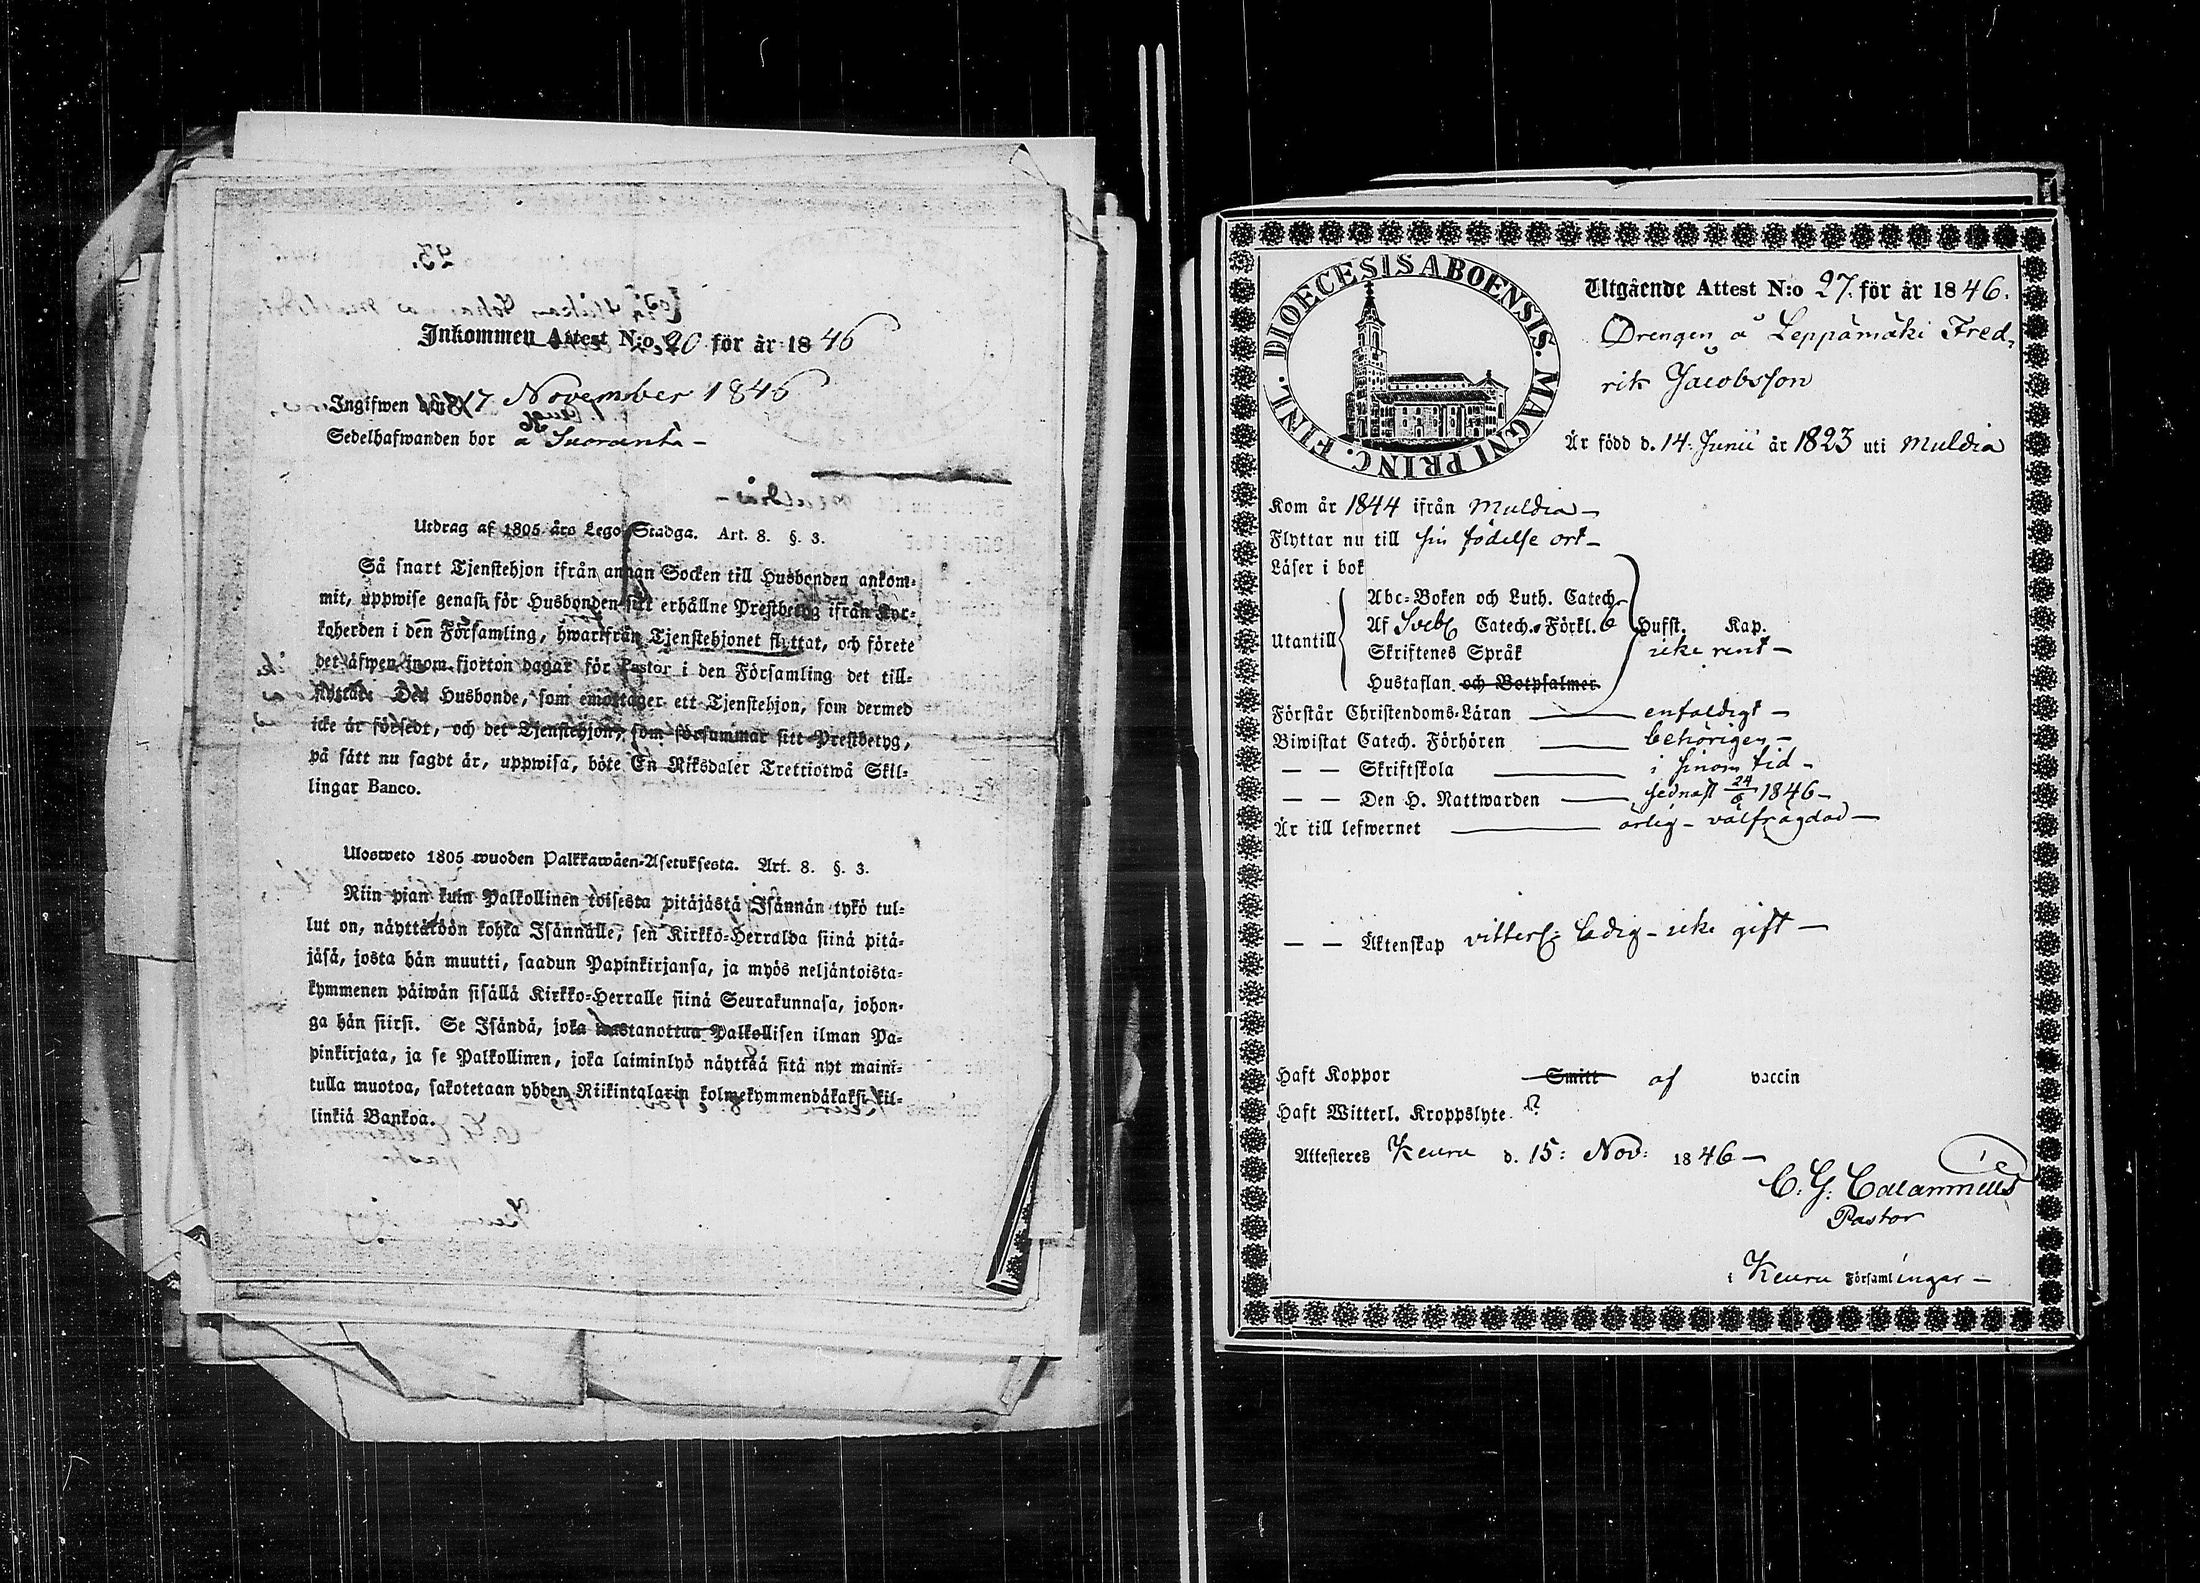 Inkommen Attest N:o 20 för år 1846
Ingifwen den 17 November 1846
Sedelhafwanden bor å Suoranta –
Utdrag af 1805 års Lego-Stadga. Art. 8. §. 3.
Så snart Tjenstehjon ifrån annan Socken till Husbonden ankom-
mit, uppwise genast för Husbonden sitt erhållne Prestbetyg ifrån Kyr-
koherden i den Församling, hwarifrån Tjenstehjonet flyttat, och förete
det äfwen inom fjorton dagar för Pastor i den Församling det till-
flyttat. Den Husbonde, som emottager ett Tjenstehjon, som dermed
icke är försedt, och det Tjenstehjon, som försummar sitt Prestbetyg,
på sätt nu sagdt är, uppwisa, böte En Riksdaler Trettiotwå Skil-
lingar Banco.
Ulosweto 1805 wuoden Palkkawäen-Asetuksesta. Art. 8. §. 3.
Niin pian kuin Palkollinen toisesta pitäjästä Isännän tykö tul-
lut on, näyttäköön kohta Isännälle, sen Kirkko-Herralda siinä pitä-
jäsä, josta hän muutti, saadun Papinkirjansa, ja myös neljäntoista-
kymmenen päiwän sisällä Kirkko-Herralle siinä Seurakunnasa, johon-
ga hän siirsi. Se Isändä, joka wastanottaa Palkollisen ilman Pa-
pinkirjata, ja se Palkollinen, joka laiminlyö näyttää sitä nyt maini-
tulla muotoa, sakotetaan yhden Riikintalarin kolmekymmendäkaksi kil-
linkiä Bankoa.
DIOECESIS ABOENSIS. MAGNI PRINC. FINL.
Utgående Attest N:o 27. för år 1846.
Drengen å Leppämäki Fred,
rik Jacobsson
Är född d. 14. Junii år 1823 uti Muldia
Kom år 1844 ifrån Muldia –
Flyttar nu till sin födelse ort –
Läser i bok
Utantill
Abc-Boken och Luth. Catech.
Af Sveb. Catech. Förkl. 6 Hufst. Kap.
Skriftenes Språk icke rent –
Hustaflan och Botpsalmer
Förstår Christendoms-Läran enfaldigt –
Biwistat Catech. Förhören behörigen –
— — Skriftskola i sinom tid –
— — Den H. Nattwarden sednast 24/6 1846 –
Är till lefwernet ärlig – välfrägdad –
— — Äktenskap vitterl: ledig – icke gift –
Haft Koppor Smitt af vaccin
Haft Witterl. Kroppslyte ?
Attesteres Keuru d. 15: Nov: 1846 –
C. G: Calamnius
Pastor
i Keuru Församlingar –